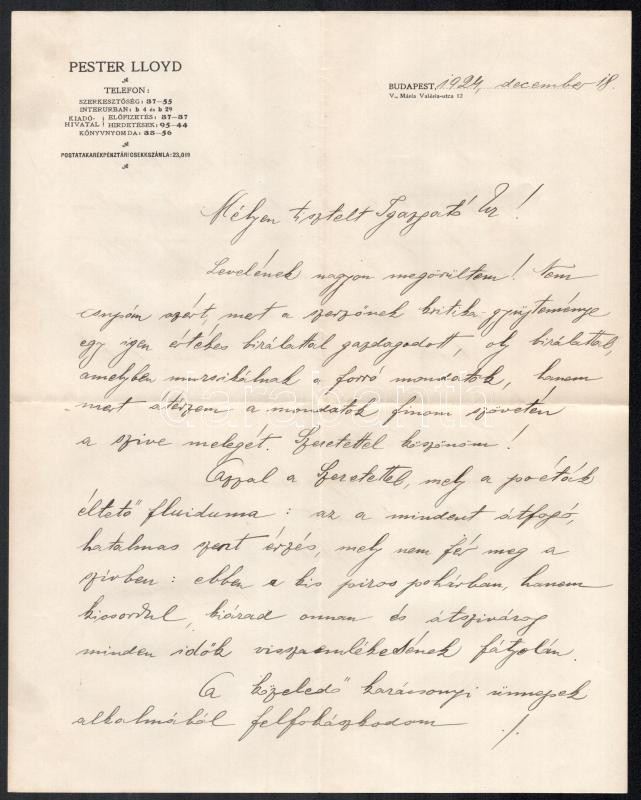 PESTER LLOYD
TELEFON:
SZERKESZTŐSÉG: 87—55
INTERURBAN: b 4 és b 29
KIADÓ-HIVATAL { ELŐFIZETÉS: 87—87
HIRDETÉSEK: 95—44
KÖNYVNYOMDA: 88—56
POSTATAKARÉKPÉNZTÁRI CSEKKSZÁMLA: 23,019
BUDAPEST, 1924, december 18.
V., Mária Valéria-utca 12
Mélyen tisztelt Igazgató Úr!
Levelének nagyon megörültem! Nem
csupán azért, mert a szerzőnek kritika-gyűjteménye
egy igen értékes birálattal gazdagodott, oly birálattal,
amelyben muzsikálnak a forró mondatok, hanem
mert átérzem a mondatok finom szövetén
a szive melegét. Szeretettel köszönöm!
Azzal a Szeretettel, mely a poéták
éltető fluiduma: az a mindent átfogó,
hatalmas szent érzés, mely nem fér meg a
szivben: ebben a kis piros pohárban, hanem
kicsordul, kiárad onnan és átszivárog
minden idők visszaemlékezésének fátyolán.
A közeledő karácsonyi ünnepek
alkalmából felfohászkodom ./.
darabanth